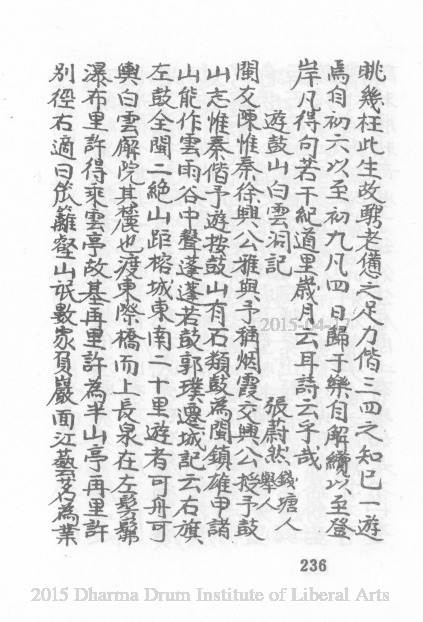 眺幾枉此生故賈老憊之足力偕三四之知已一遊
焉自初六以至初九凡四日歸于樂自解纜以至登
岸凡得句若干紀道里歲月云耳詩云乎哉
遊鼓山白雲洞記
張蔚然錢塘人舉人
閩友陳惟秦徐興公雅與予稱烟霞交興公授予鼓
山志惟秦偕予遊按鼓山有石類鼓為閩鎮雄甲諸
山能作雲雨谷中聲蓬蓬若鼓郭璞遷城記云右旗
左鼓全閩二絶山距榕城東南二十里遊者可舟可
輿白雲廨院其麓也渡東際橋而上長泉在左髣髴
瀑布里許得乘雲亭故基再里許為半山亭再里許
別徑右適曰茂籬壑山氓數家負巖面江藝茗為業
2015-04-17
236
2015 Dharma Drum Institute of Liberal Arts